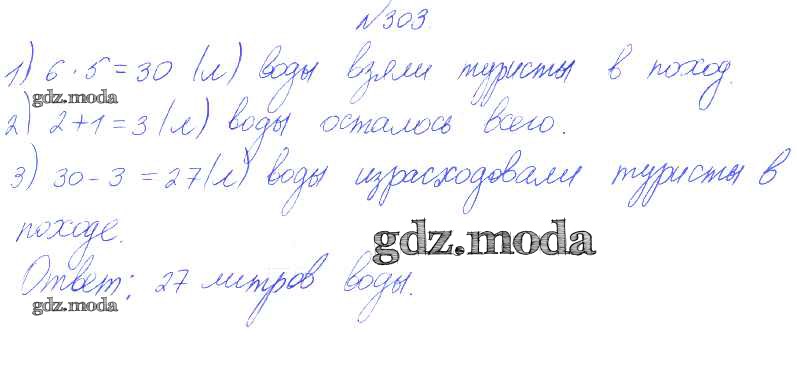 №303.
1) 6 · 5 = 30 (л) воды взяли туристы в поход.
gdz.moda
2) 2 + 1 = 3 (л) воды осталось всего.
3) 30 - 3 = 27 (л) воды израсходовали туристы в
походе.
gdz.moda
Ответ: 27 литров воды.
gdz.moda